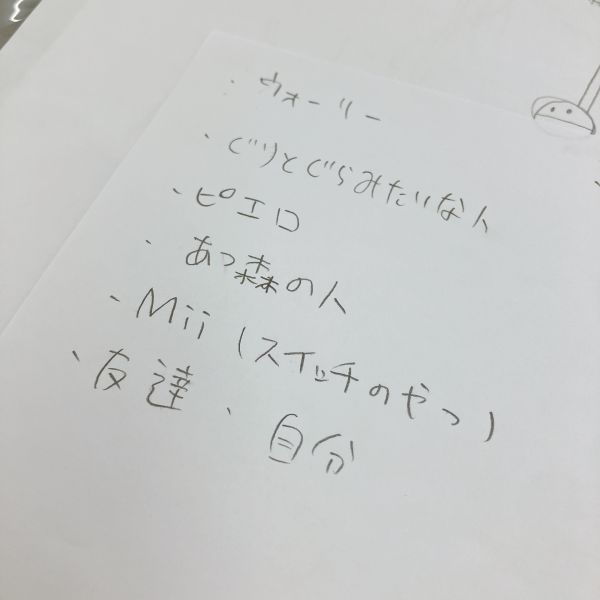 ・ウォーリー
・ぐりとぐらみたいな人
・ピエロ
・あつ森の人
・Mii (スイッチのやつ)
・友達、自分